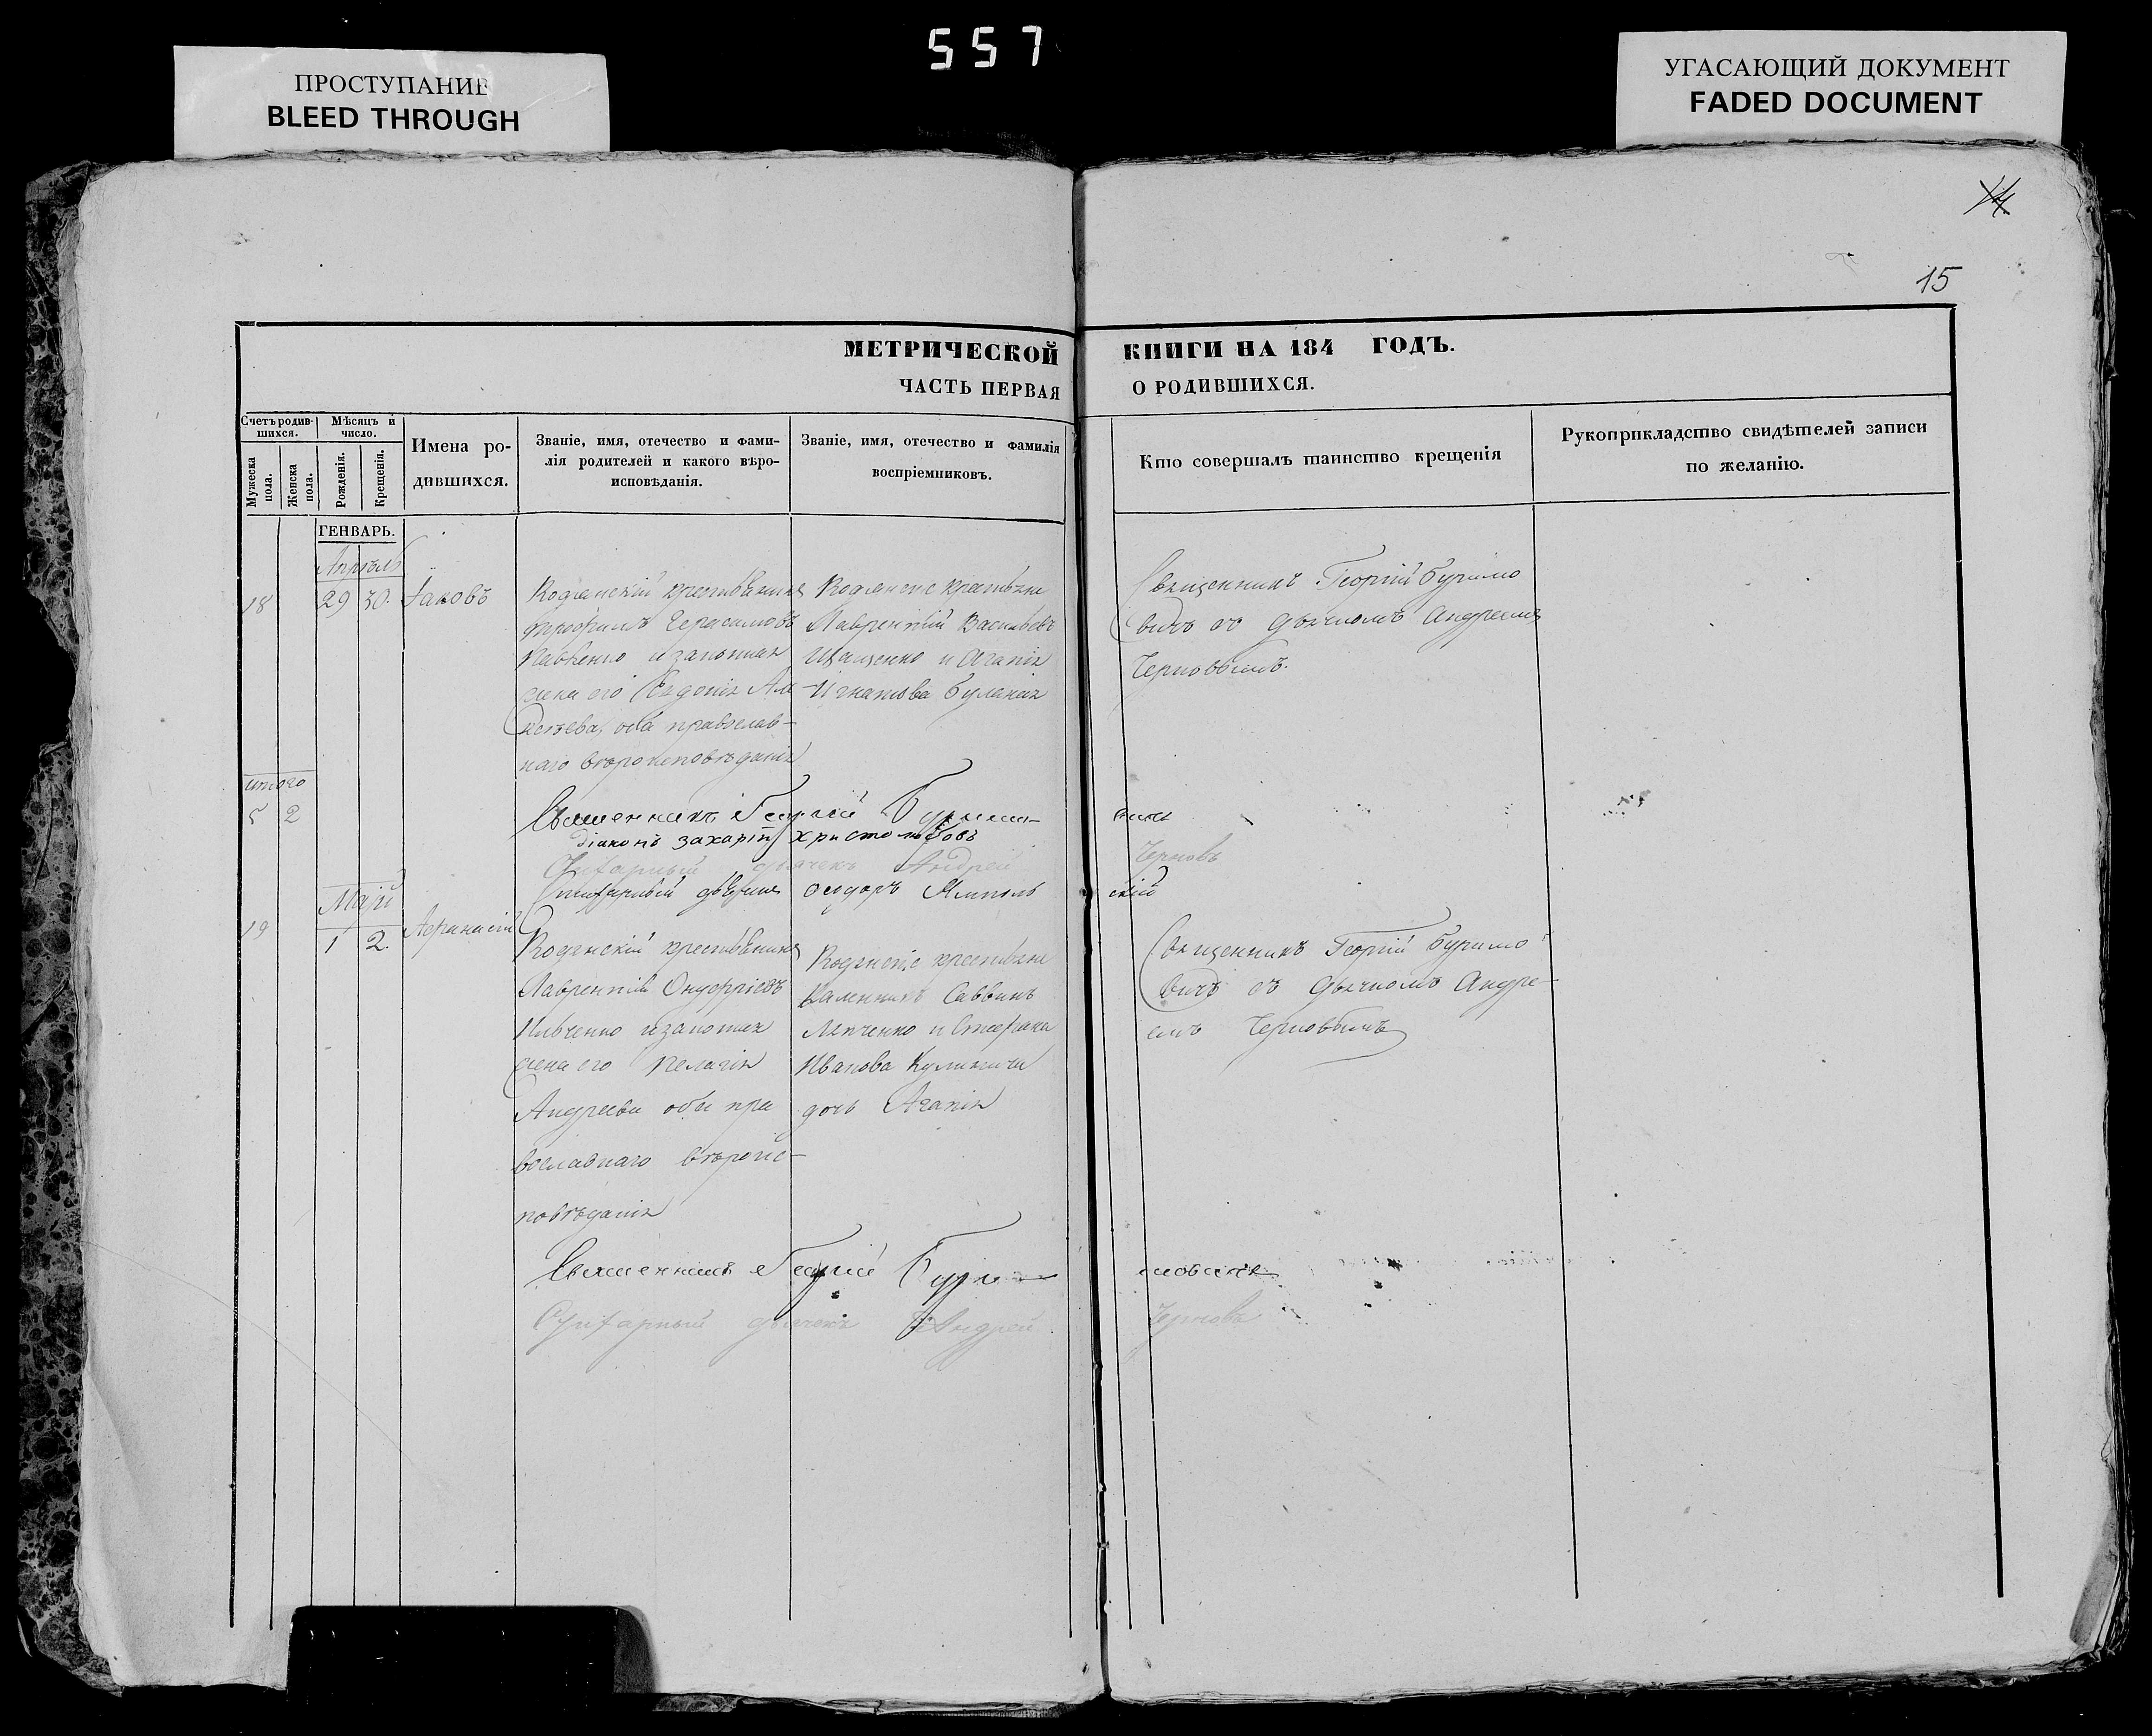 557
ПРОСТУПАНИЕ
BLEED THROUGH
УГАСАЮЩИЙ ДОКУМЕНТ
FADED DOCUMENT
14
15
МЕТРИЧЕСКОЙ КНИГИ НА 184 ГОДЪ.
ЧАСТЬ ПЕРВАЯ О РОДИВШИХСЯ.
Счетъ родив-
шихся.
Мѣсяцъ и
число.
Мужеска
пола.
Женска
пола.
Рожденія.
Крещенія.
Имена ро-
дившихся.
Званіе, имя, отечество и фами-
лія родителей и какого вѣро-
исповѣданія.
Званіе, имя, отечество и фамилія
воспріемниковъ.
Кто совершалъ таинство крещенія
Рукоприкладство свидѣтелей записи
по желанію.
ГЕНВАРЬ.
Апрѣль
18
29 30.
Іаковъ
крестьянинъ
Герасимовъ
и законная
жена его Евдокія
оба православ-
наго вѣроисповѣданія
крестьяне
Лаврентій Васильевъ
и Агапія
Игнатова
Священникъ Георгій Буримо
вичъ съ дьячкомъ Андреемъ
Черновымъ.
итого
5 2
Священникъ Георгій Буримо-
вичъ
діаконъ захарій христолюбовъ
дьячекъ Андрей Черновъ
Ѳеодоръ Ямполь
скій
Маій
19
1 2.
Афанасій
крестьянинъ
Лаврентій Онуфріевъ
Ильченко и законная
жена его Пелагія
Андреева оба пра
вославнаго вѣроис-
повѣданія
крестьяне
Саввинъ
и Стефана
Иванова
дочь Агапія
Священникъ Георгій Буримо
вичъ съ дьячкомъ Андре-
емъ Черновымъ
Священникъ Георгій Бури-
мовичъ
дьячекъ Андрей Черновъ